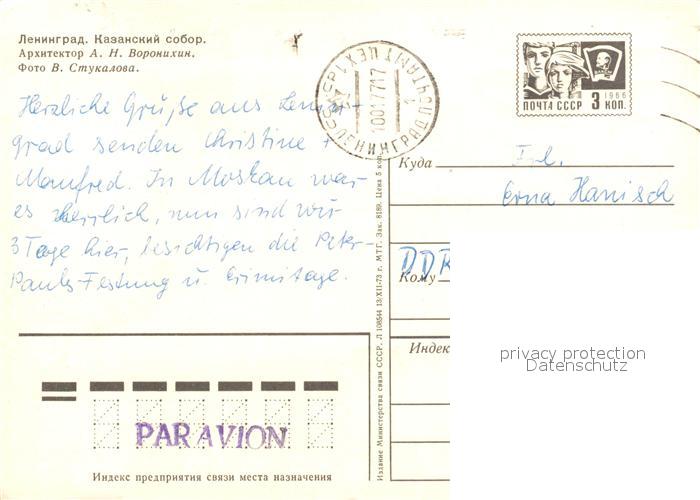 Ленинград. Казанский собор.
Архитектор А. Н. Воронихин.
Фото В. Стукалова.
ПОЧТА СССР 3 КОП.
1966
ЛЕНИНГРАД ПОЧТАМТ
Herzliche Grüße aus Lenin-
grad senden Christine +
Manfred. In Moskau war
es herrlich, nun sind wir
3 Tage hier, besichtigen die Peter-
Pauls-Festung u. Erimitage.
Куда
Frl.
Erna Hanisch
DDR
Кому
Индек
privacy protection
Datenschutz
Издание Министерства связи СССР. Л 108544 13/XII-73 г. МТГ. Зак. 8189. Цена 5 коп.
PAR AVION
Индекс предприятия связи места назначения